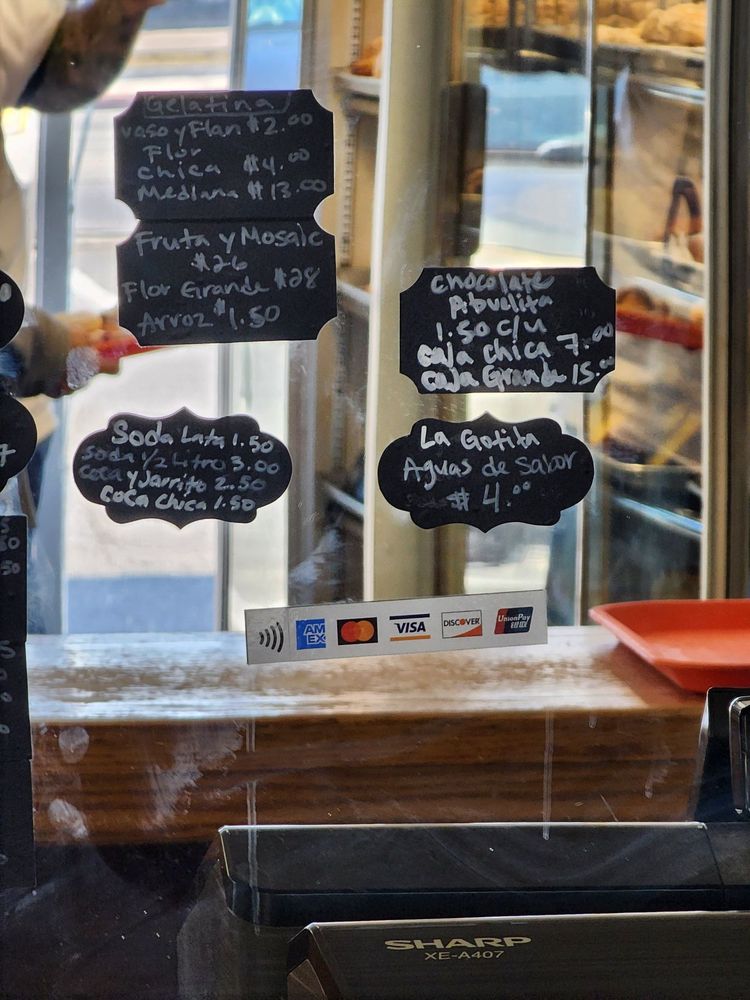 Gelatina
vaso y Flan $2.00
Flor
chica $4.00
Mediana $13.00
Fruta y Mosaic
$26
Flor Grande $28
Arroz $1.50
Chocolate
Abuelita
1.50 c/u
caja chica 7.00
caja Grande 15.
Soda Lata 1.50
soda 1/2 Litro 3.00
coca y Jarrito 2.50
coca chica 1.50
La Gotita
Aguas de Sabor
$4.00
AM
EX
VISA
DISCOVER
UnionPay
银联
SHARP
XE-A407